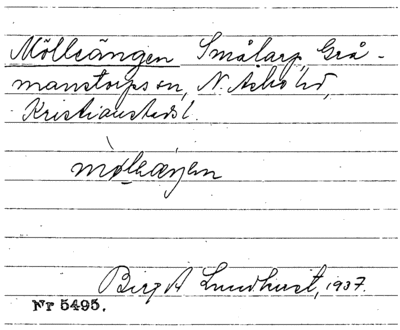 Mölleängen Smålarp, Grå-
manstorps sn, N. Åsbo hd,
Kristianstads l.
Birgit Lundhust, 1937.
Nr 5495.